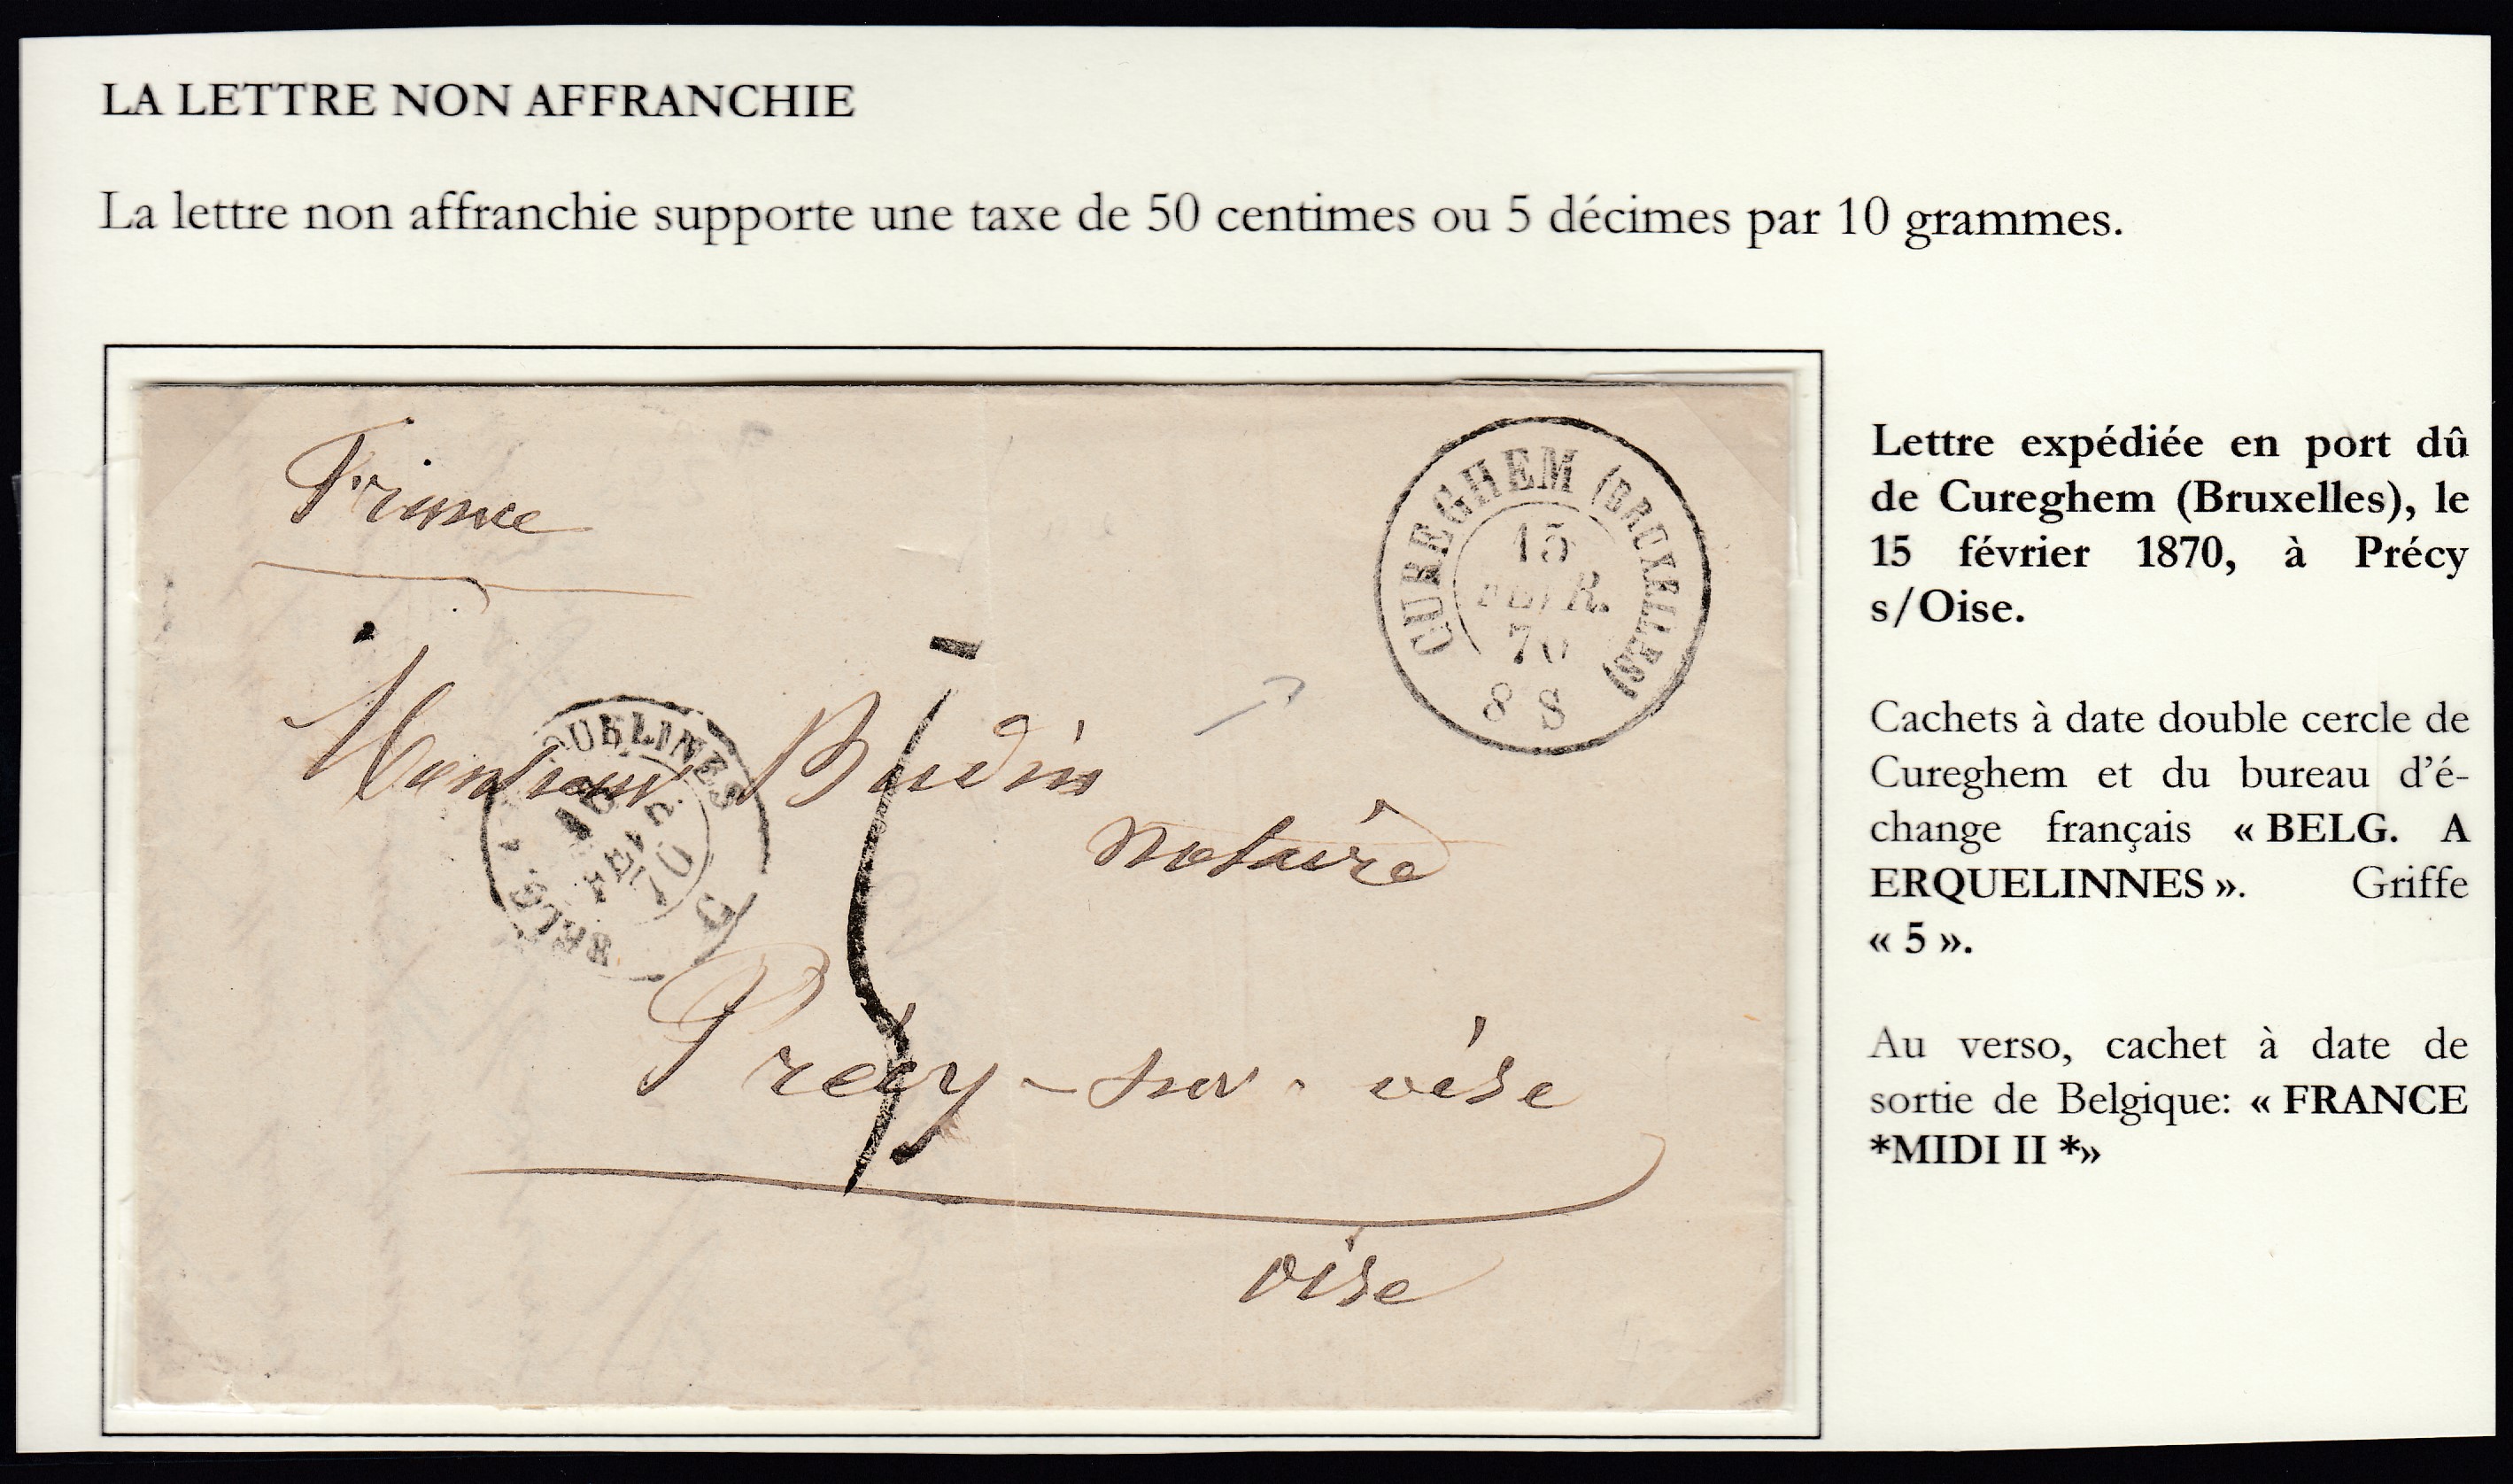 LA LETTRE NON AFFRANCHIE
La lettre non affranchie supporte une taxe de 50 centimes ou 5 décimes par 10 grammes.
France
CUREGHEM (BRUXELLES)
15
FEVR.
70
8 S
Monsieur Budin
notaire
QUELINES
16
FEVR
70
BELG.
5
Précy-sur-oise
oise
Lettre expédiée en port dû
de Cureghem (Bruxelles), le
15 février 1870, à Précy
s/Oise.
Cachets à date double cercle de
Cureghem et du bureau d'é-
change français « BELG. A
ERQUELINNES ». Griffe
« 5 ».
Au verso, cachet à date de
sortie de Belgique: « FRANCE
*MIDI II *»